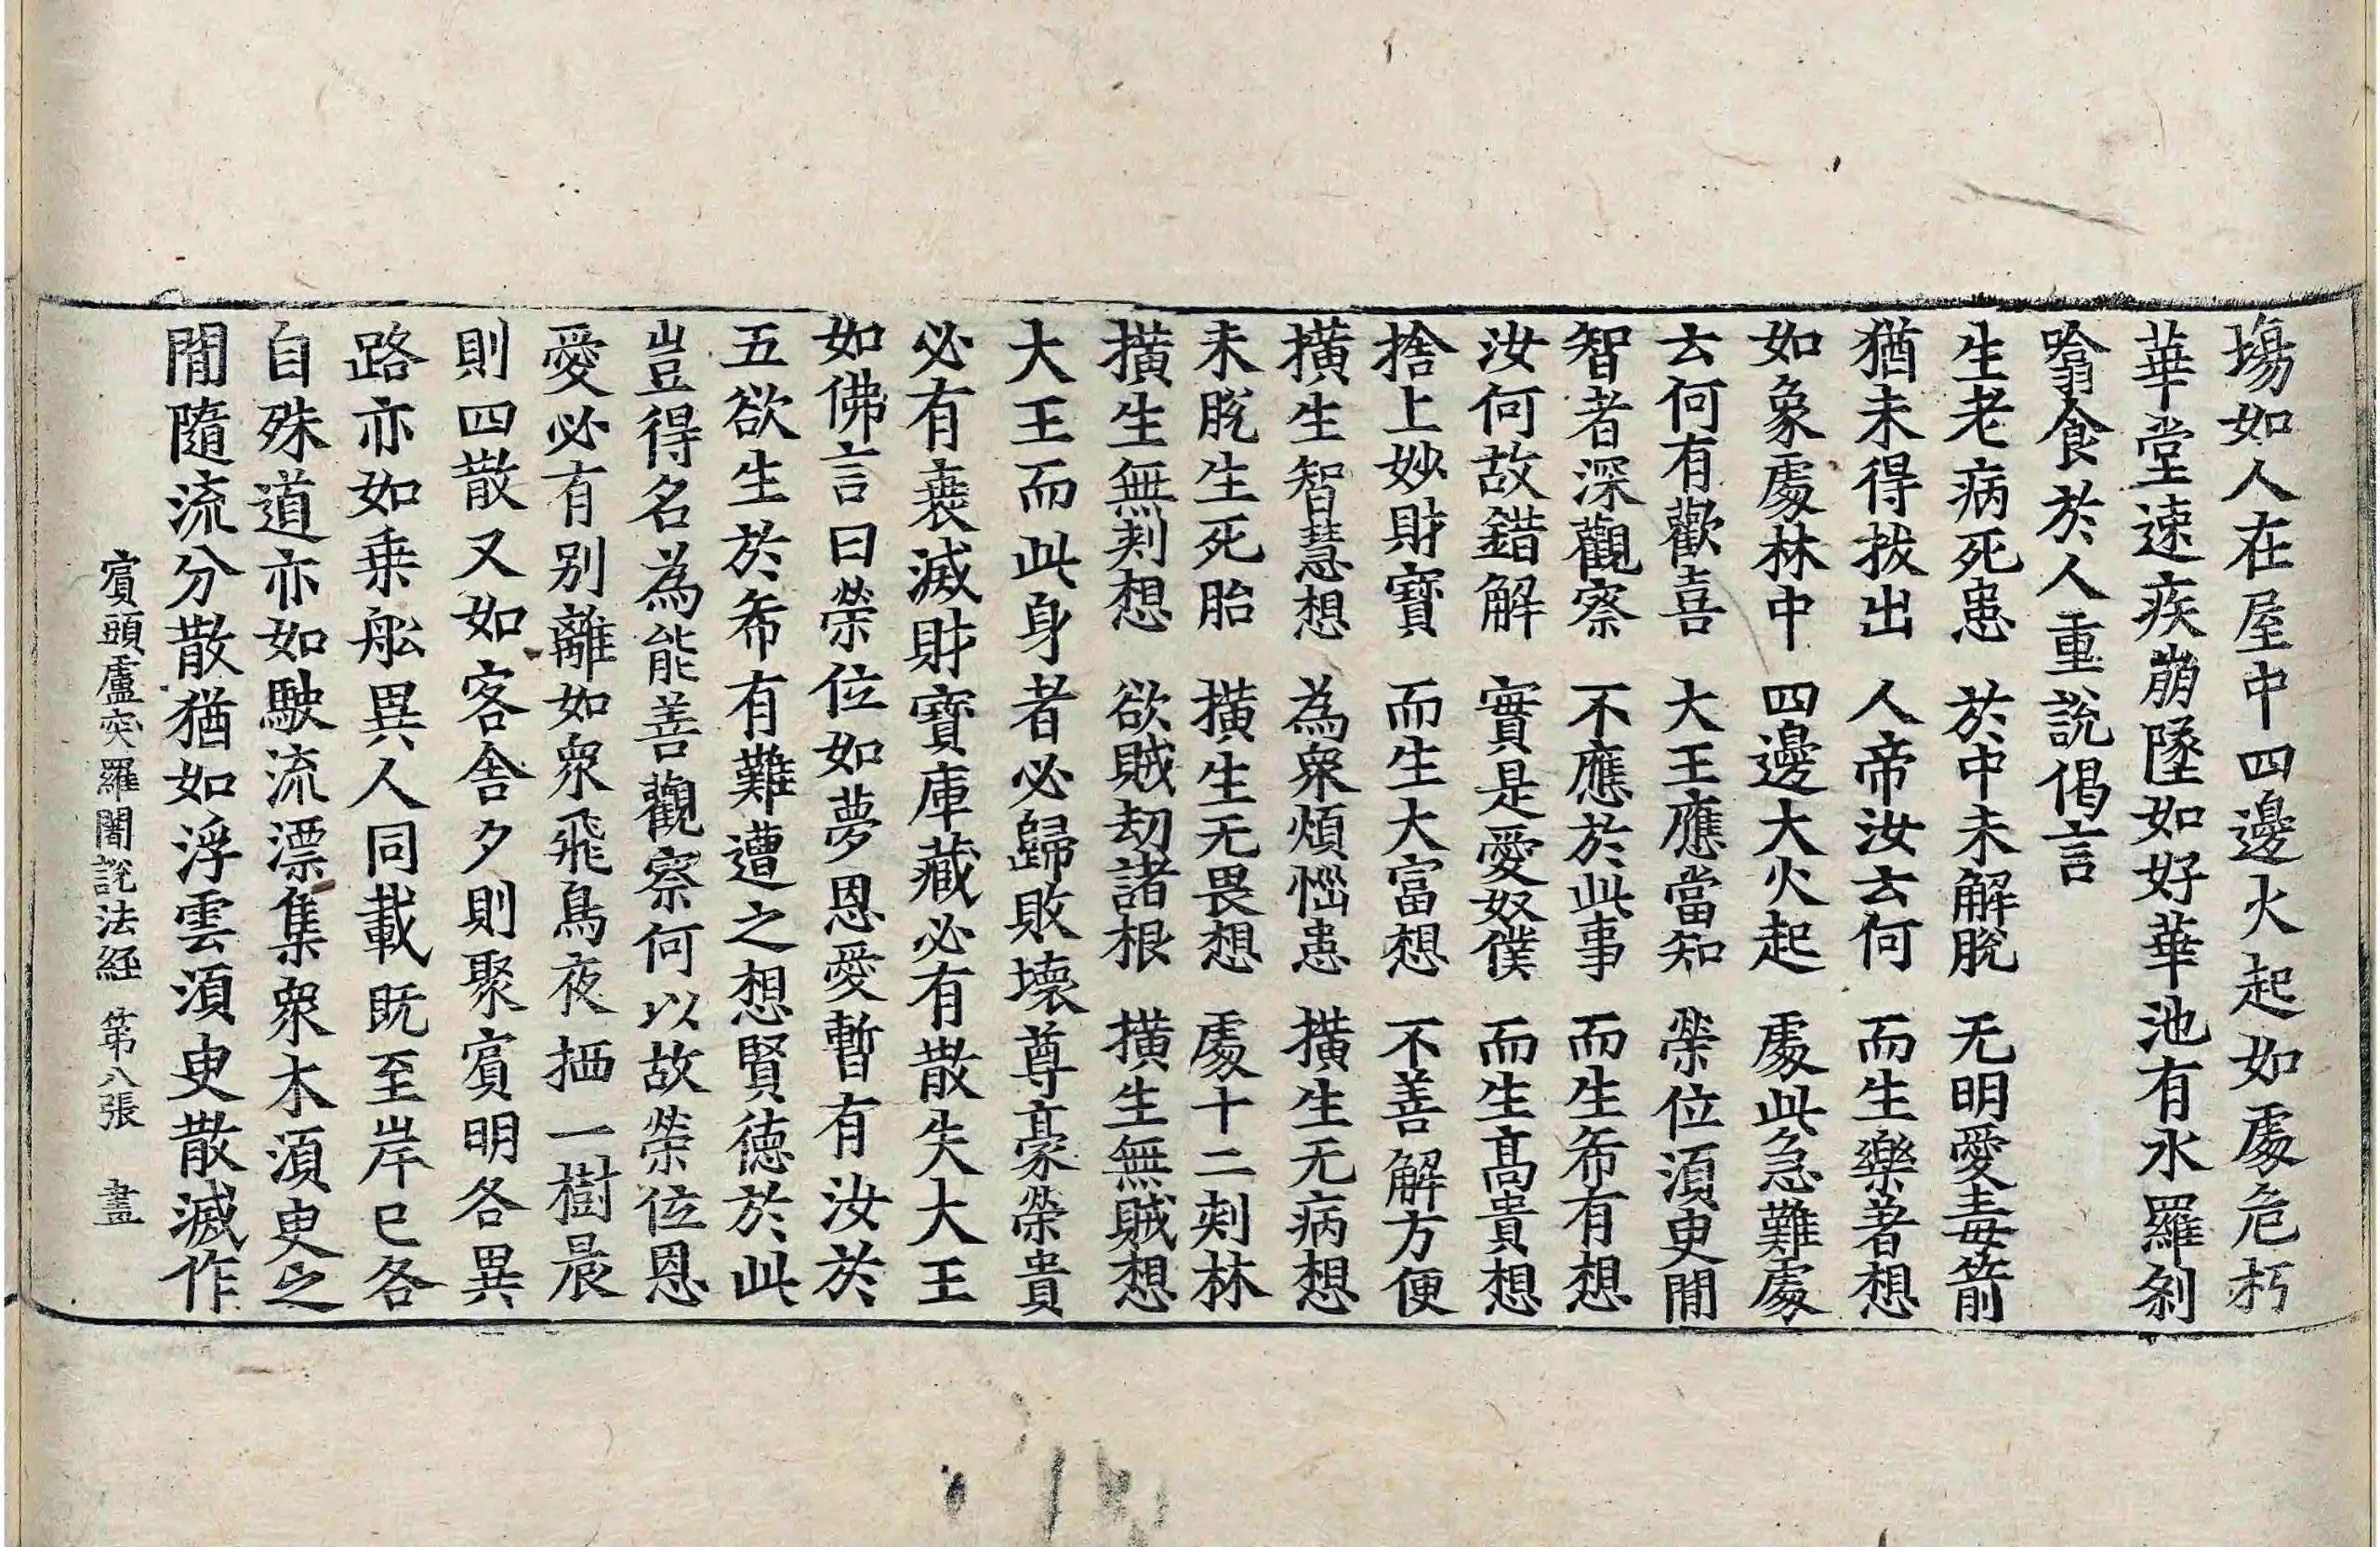 塲如人在屋中四邊火起如處危朽
華堂速疾崩墜如好華池有水羅剎
噏食於人重說偈言
生老病死患　於中未解脫　无明愛毒箭
猶未得拔出　人帝汝云何　而生樂著想
如象處林中　四邊大火起　處此急難處
云何有歡喜　大王應當知　榮位湏臾閒
智者深觀察　不應於此事　而生希有想
汝何故錯解　實是愛奴僕　而生髙貴想
捨上妙財寶　而生大富想　不善解方便
撗生智慧想　為衆煩惱患　撗生无病想
未脫生死胎　撗生无畏想　處十二刾林
撗生無刾想　欲賊劫諸根　撗生無賊想
大王而此身者必歸敗壞尊豪榮貴
必有衰滅財寶庫藏必有散失大王
如佛言曰榮位如夢恩愛暫有汝於
五欲生於希有難遭之想賢德於此
豈得名為能善觀察何以故榮位恩
愛必有别離如衆飛鳥夜栖一樹晨
則四散又如客舍夕則聚賓明各異
路亦如乗舩異人同載既至岸已各
自殊道亦如駛流漂集衆木湏臾之
閒隨流分散猶如浮雲湏臾散滅作
賓頭盧突羅闍說法經　第八張　畫